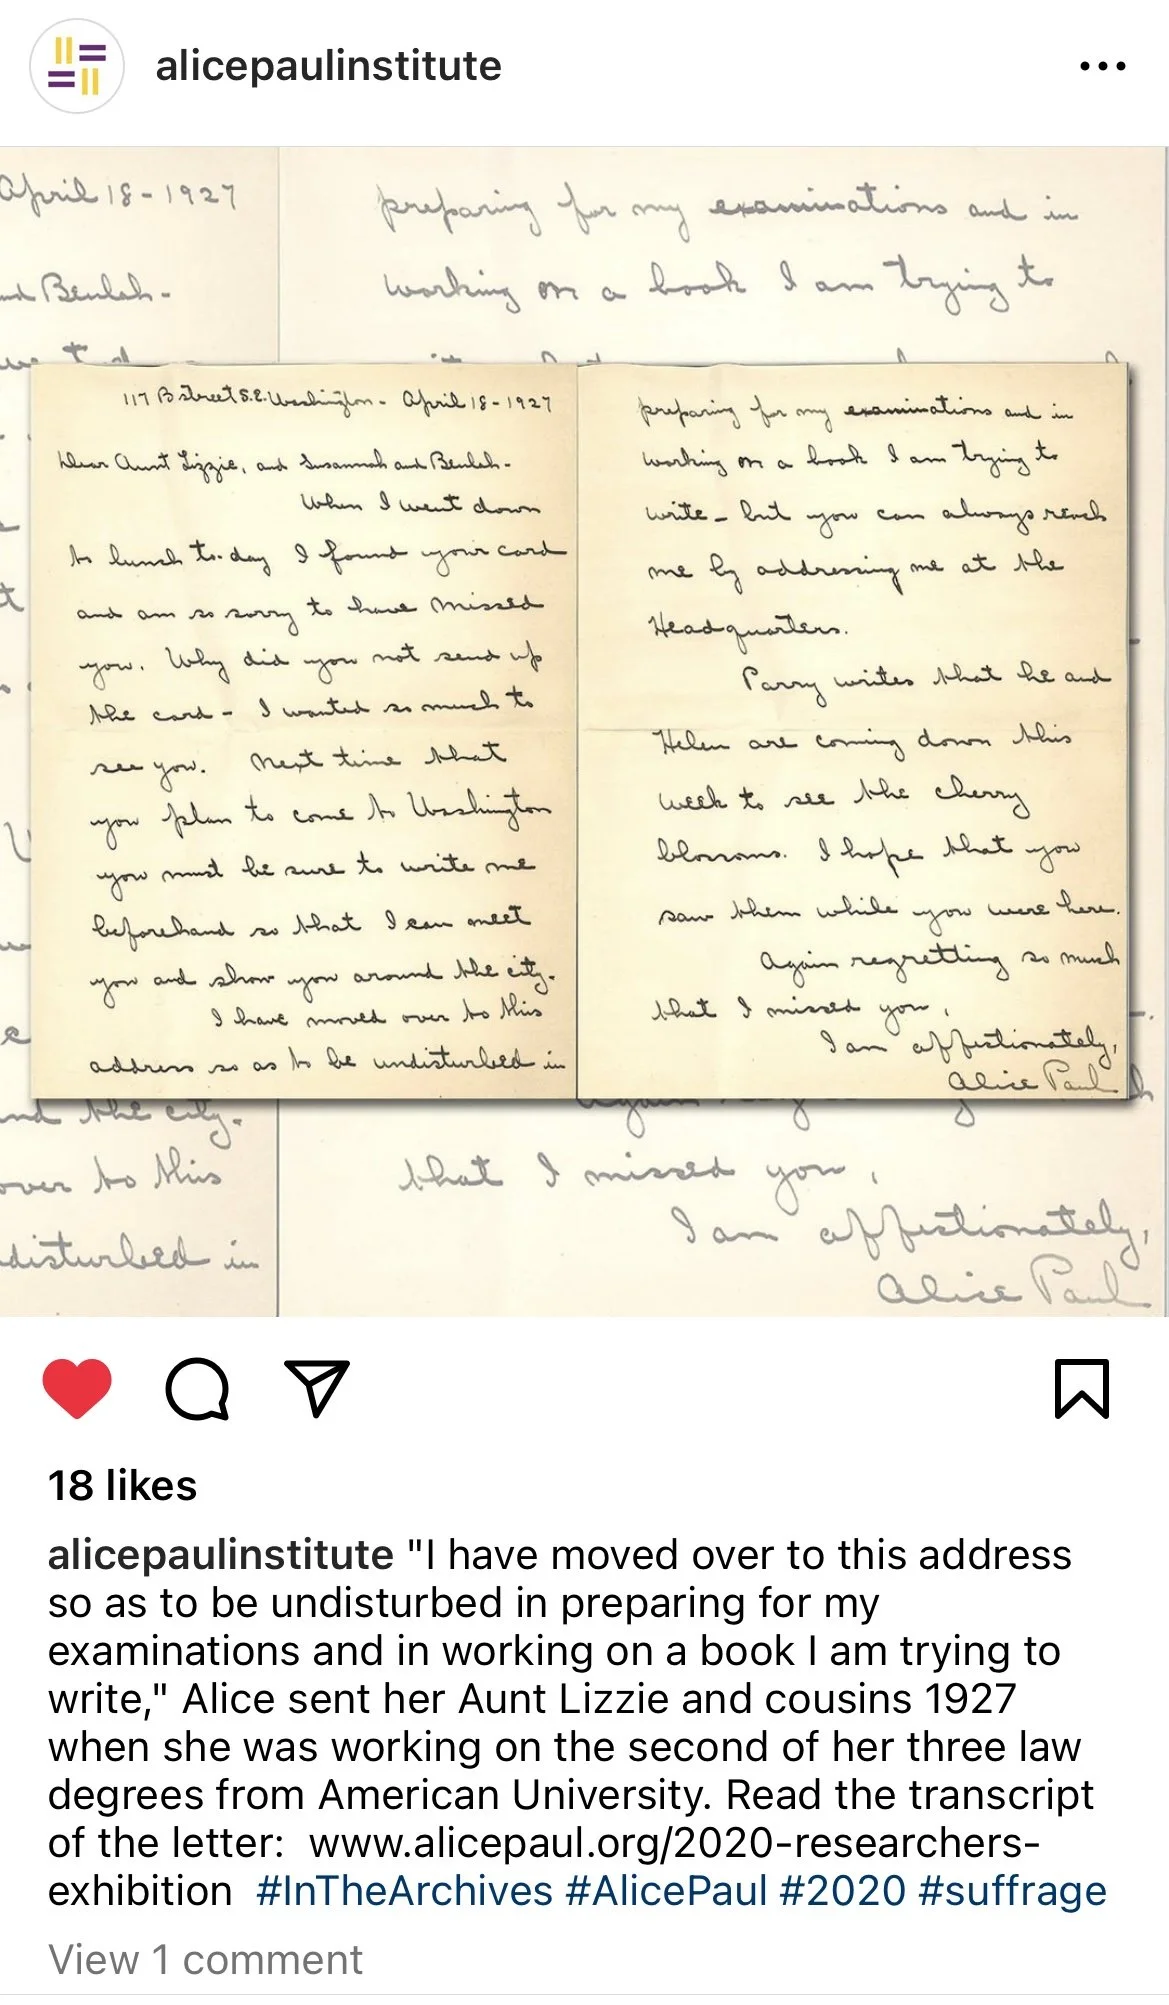 alicepaulinstitute
April 18-1927
and Beulah-
preparing for my examinations and in
working on a book I am trying to
117 B Street S.E. Washington - April 18-1927
Dear Aunt Lizzie, and Susannah and Beulah-
When I went down
to lunch to-day I found your card
and am so sorry to have missed
you. Why did you not send up
the card - I wanted so much to
see you. Next time that
you plan to come to Washington
you must be sure to write me
beforehand so that I can meet
you and show you around the city.
I have moved over to this
address so as to be undisturbed in
preparing for my examinations and in
working on a book I am trying to
write - but you can always reach
me by addressing me at the
Headquarters.
Parry writes that he and
Helen are coming down this
week to see the cherry
blossoms. I hope that you
saw them while you were here.
Again regretting so much
that I missed you,
I am affectionately,
Alice Paul
and the city.
over to this
disturbed in
that I missed you,
I am affectionately,
Alice Paul
18 likes
alicepaulinstitute "I have moved over to this address
so as to be undisturbed in preparing for my
examinations and in working on a book I am trying to
write," Alice sent her Aunt Lizzie and cousins 1927
when she was working on the second of her three law
degrees from American University. Read the transcript
of the letter: www.alicepaul.org/2020-researchers-
exhibition #InTheArchives #AlicePaul #2020 #suffrage
View 1 comment